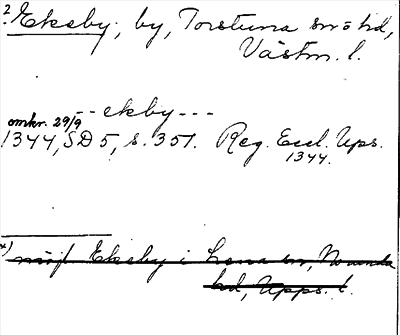 2
Ekeby, by, Torstuna sn o hd,
Västm. l.
-- ekby ---
omkr. 29/9
1344, SD 5, s. 351. Reg. Eccl. Ups.
1344.
*)
Ekeby i Lena sn, Norunda
hd, Upps. l.